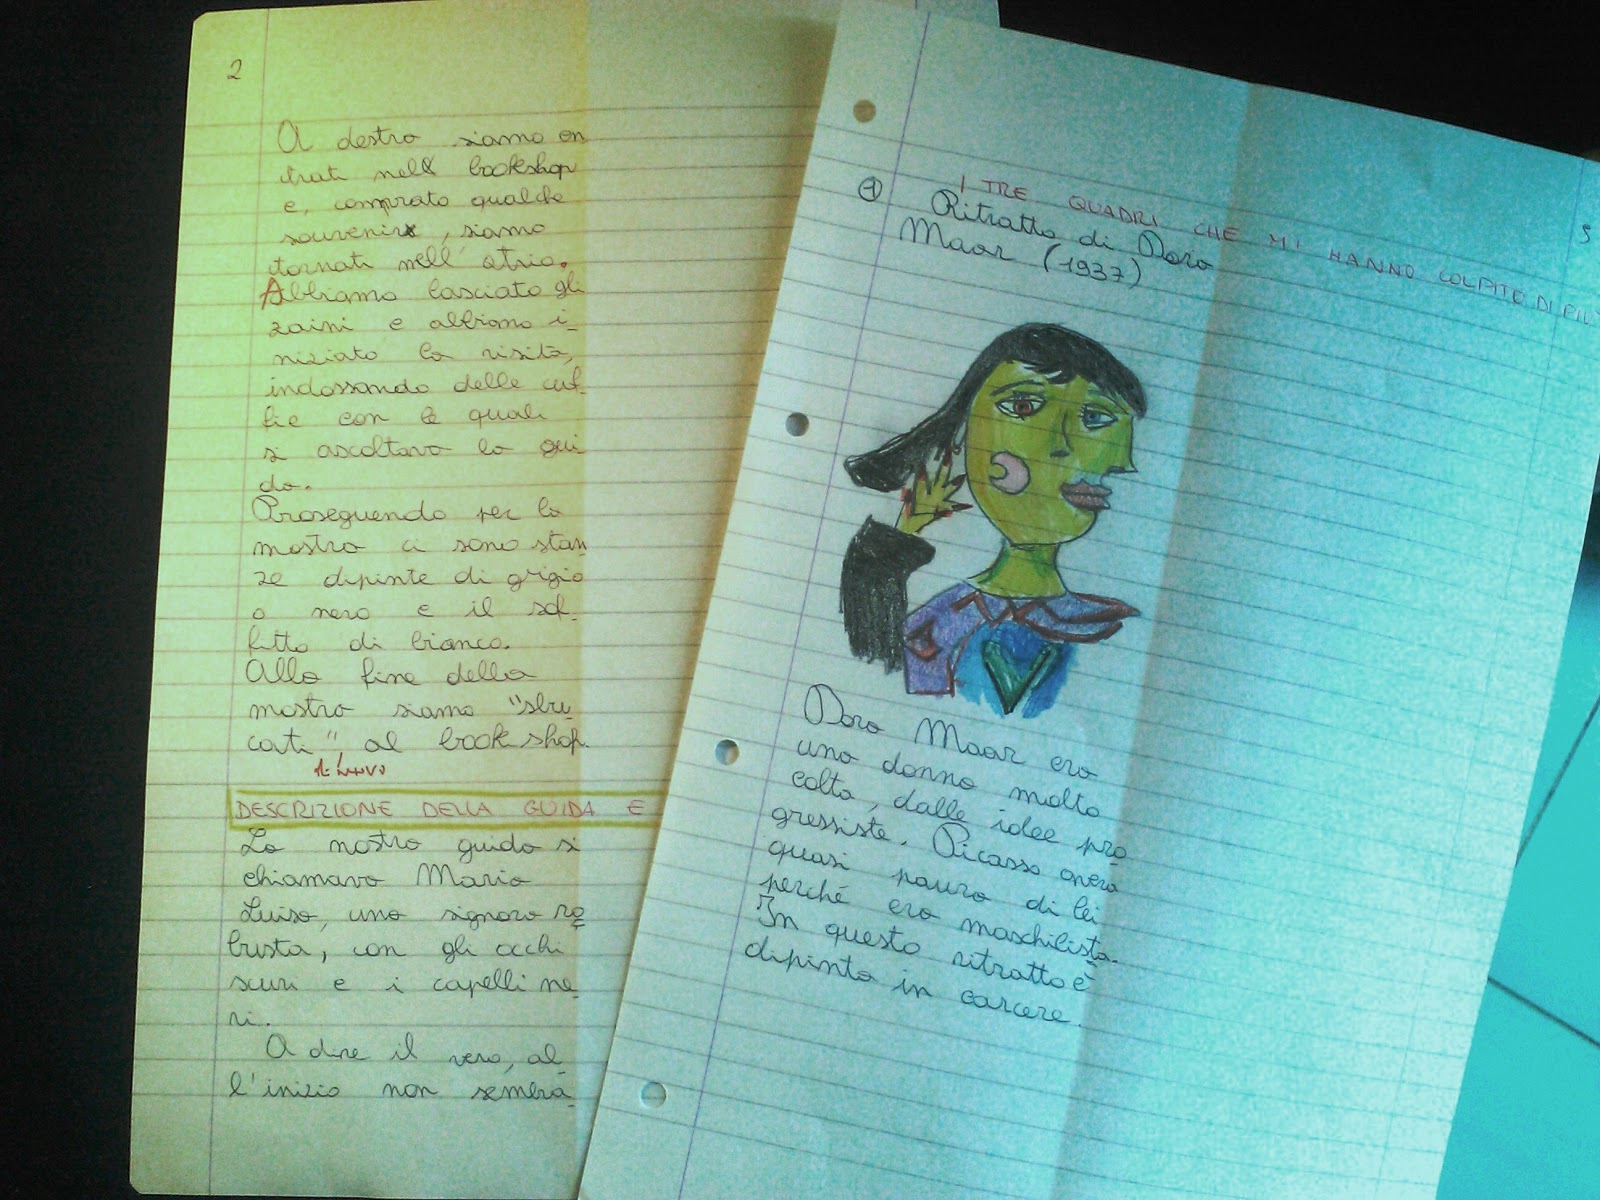 2
A destra siamo en
trati nel bookshop
e, comprato qualche
souvenir, siamo
tornati nell'atrio.
Abbiamo lasciato gli
zaini e abbiamo i-
niziato la visita,
indossando delle cuf-
fie con le quali
si ascoltava la gui
da.
Proseguendo per la
mostra ci sono stan
ze dipinte di grigio
o nero e il sof-
fitto di bianco.
Alla fine della
mostra siamo "sbu-
cati", al book shop.
di nuovo
DESCRIZIONE DELLA GUIDA E
La nostra guida si
chiamava Maria
Luisa, una signora ro
busta, con gli occhi
scuri e i capelli ne-
ri.
A dire il vero, al-
l'inizio non sembra-
5
I TRE QUADRI CHE MI HANNO COLPITE DI PIU'
1 Ritratto di Dora
Maar (1937)
Dora Maar era
una donna molto
colta, dalle idee pro
gressiste. Picasso aveva
quasi paura di lei
perché era maschilista.
In questo ritratto è
dipinta in carcere.